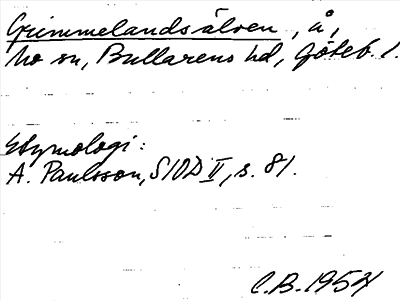 Grimmelandsälven, å,
Mo sn, Bullarens hd, Göteb. l.
Etymologi:
A. Paulsson, SIOD II, s. 81.
C.B. 1954